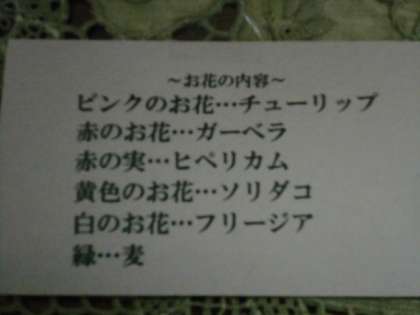 ～お花の内容～
ピンクのお花…チューリップ
赤のお花…ガーベラ
赤の実…ヒペリカム
黄色のお花…ソリダコ
白のお花…フリージア
緑…麦